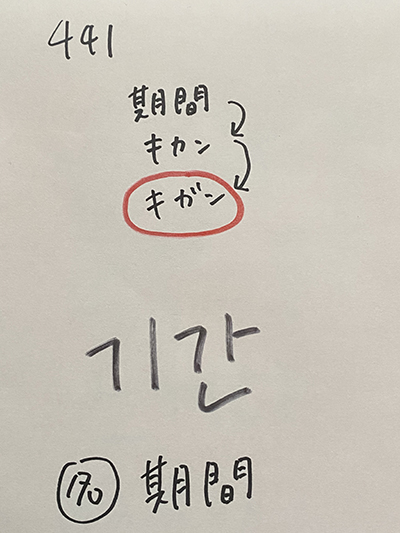 441
期間
キカン
キガン
기간
名 期間